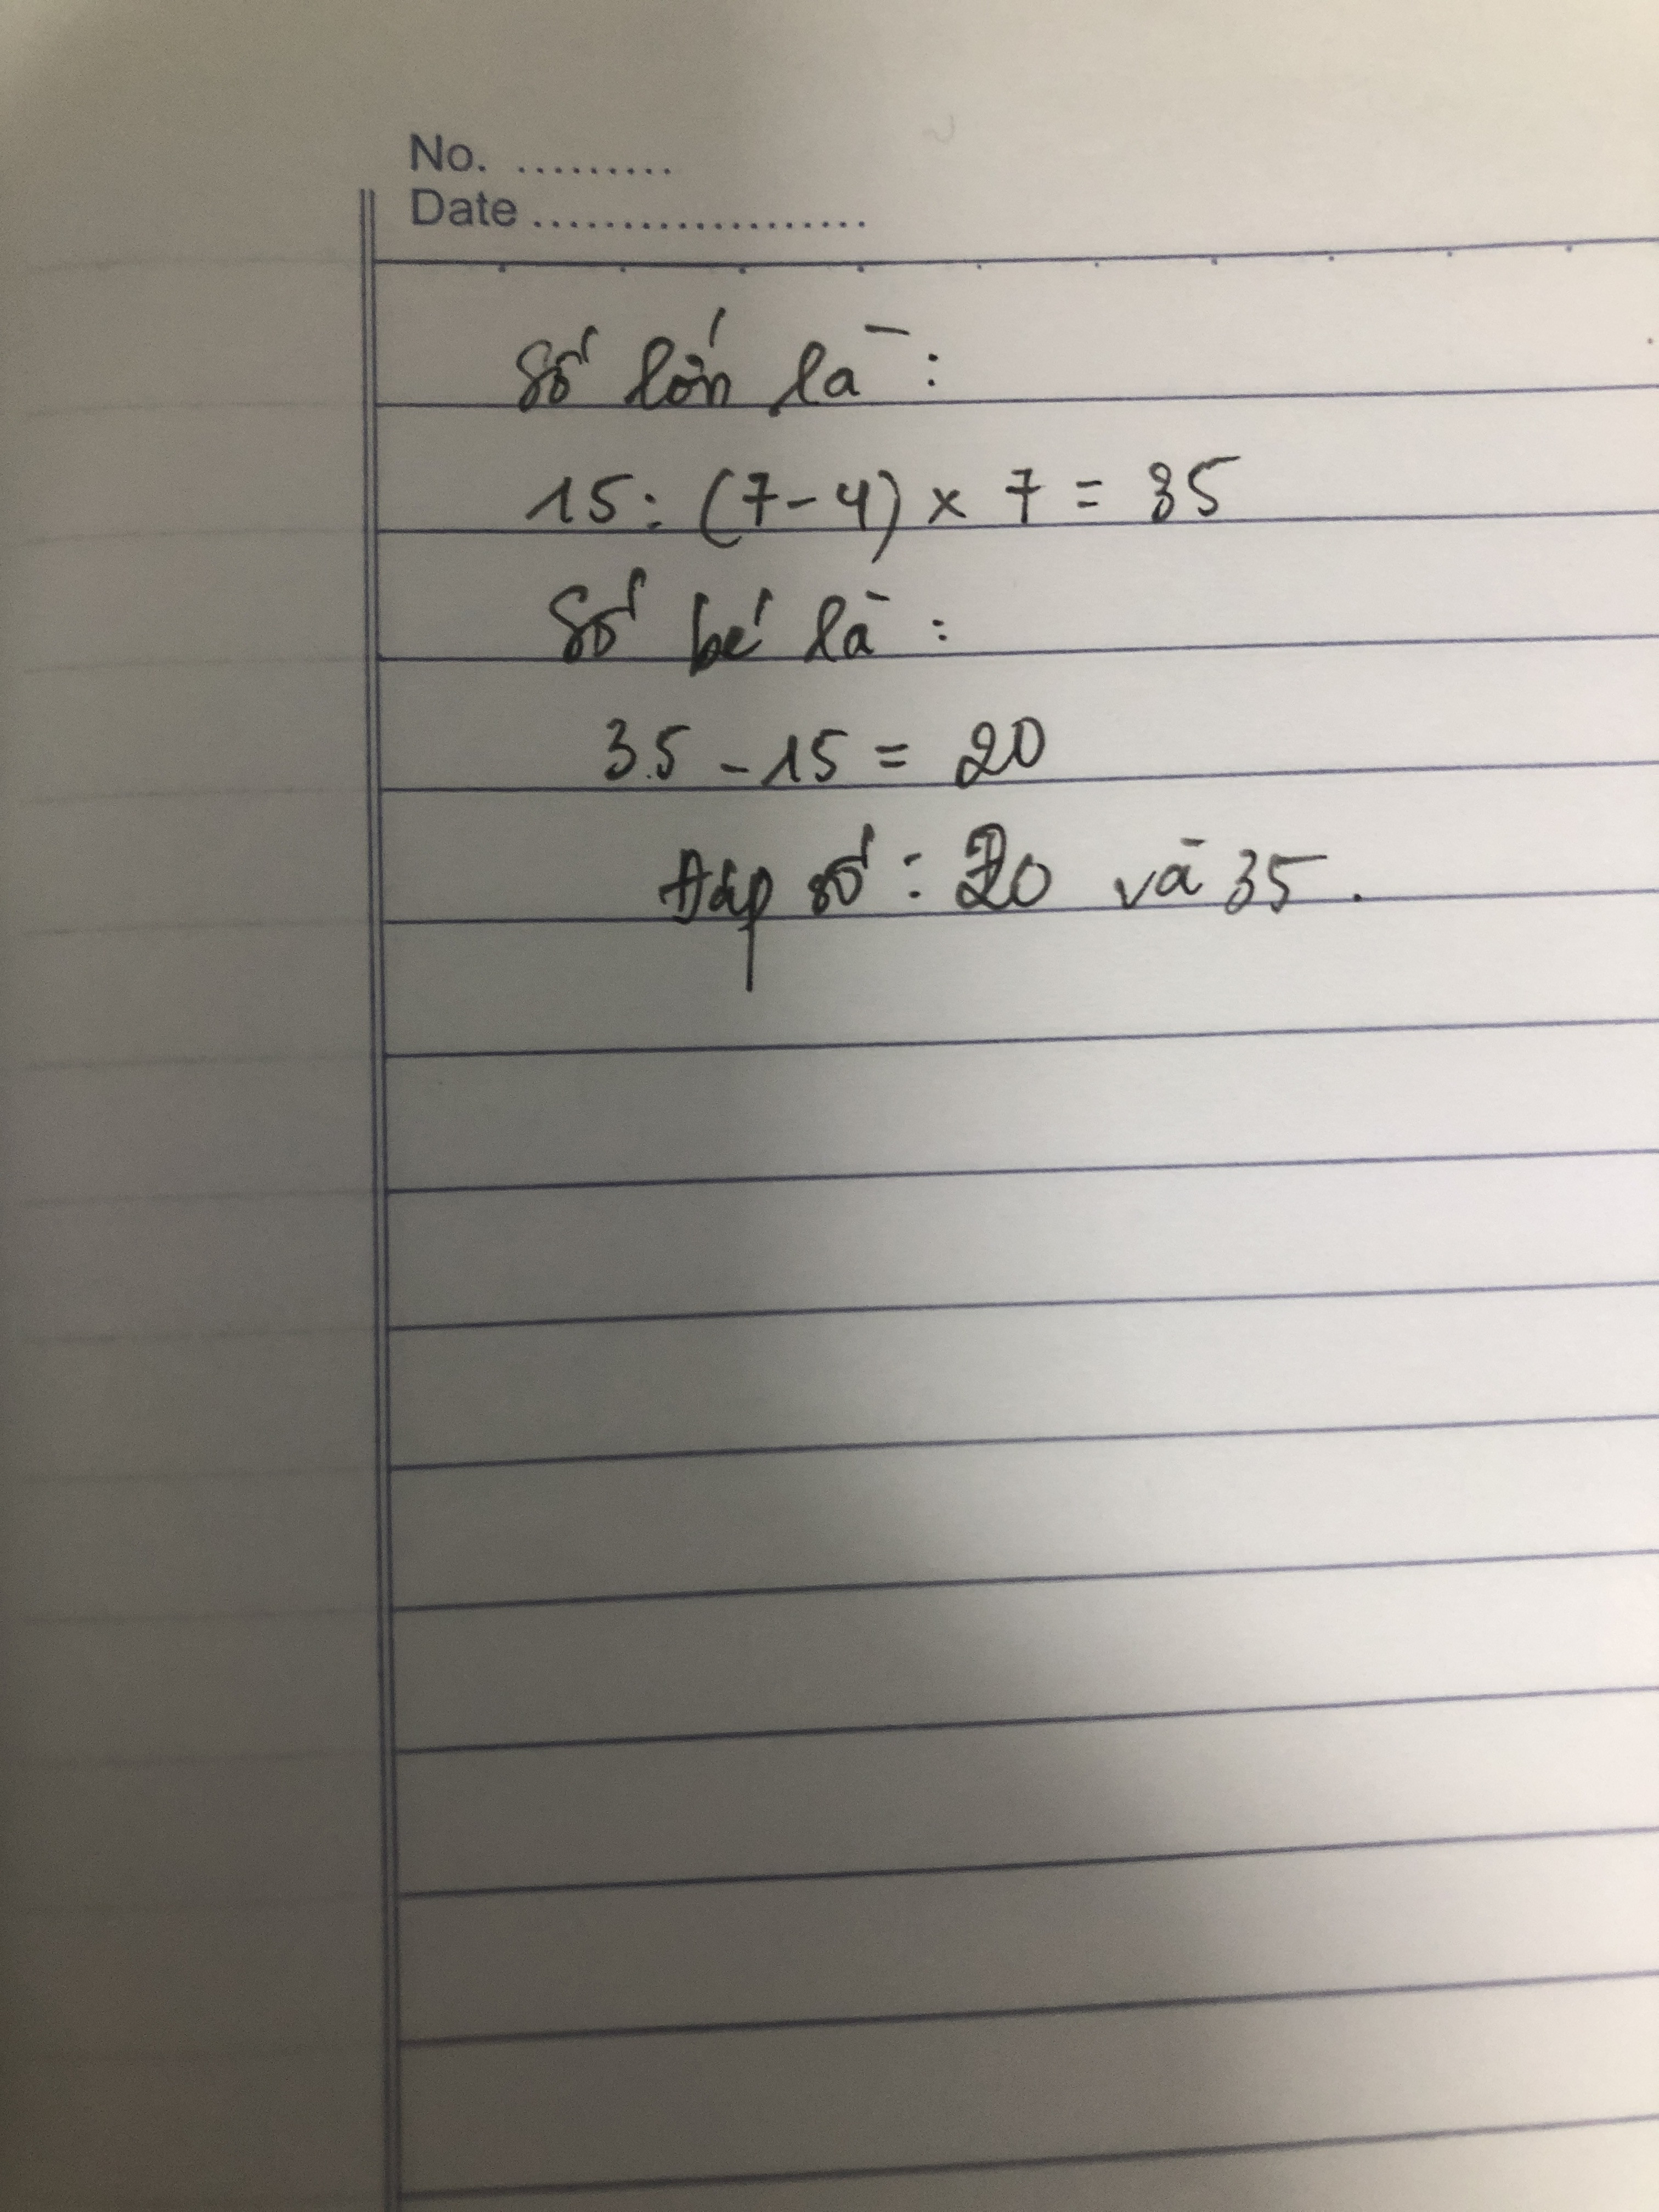 No. .........
Date ...................
Số lớn là :
15 : (7 - 4) x 7 = 35
Số bé là :
35 - 15 = 20
Đáp số : 20 và 35 .